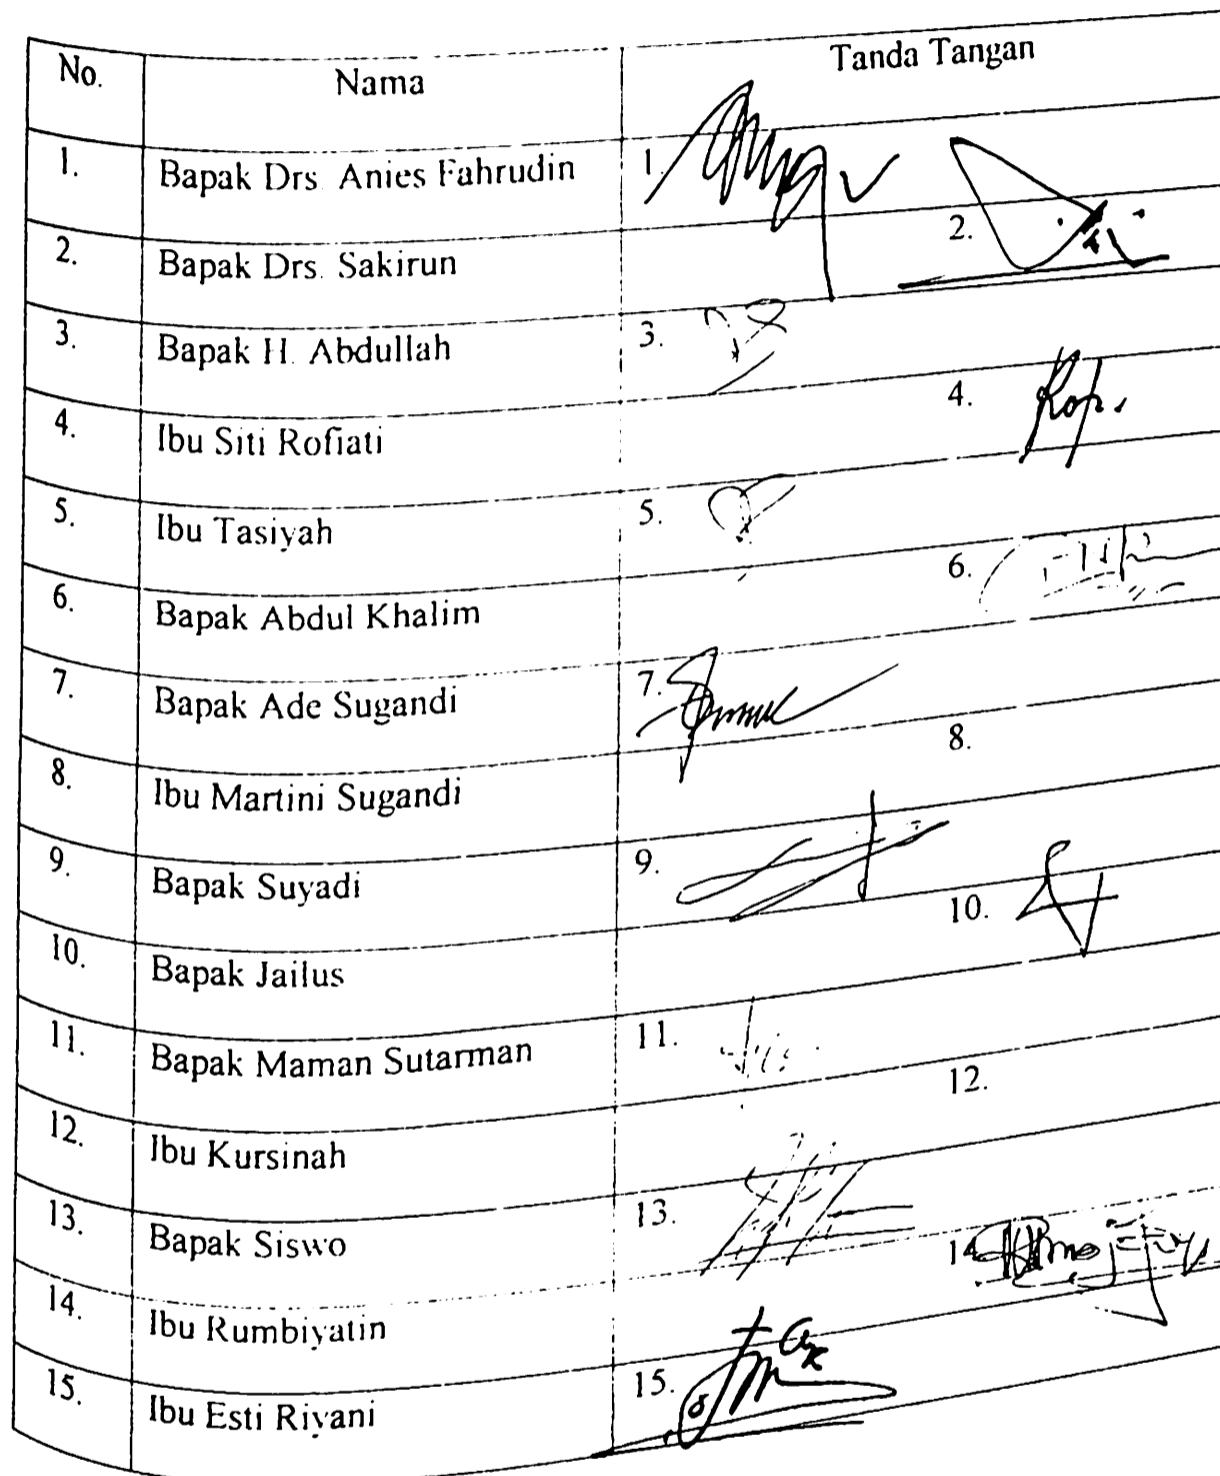 No. Nama Tanda Tangan
1. Bapak Drs. Anies Fahrudin 1.
2. Bapak Drs. Sakirun 2.
3. Bapak H. Abdullah 3.
4. Ibu Siti Rofiati 4.
5. Ibu Tasiyah 5.
6. Bapak Abdul Khalim 6.
7. Bapak Ade Sugandi 7.
8. Ibu Martini Sugandi 8.
9. Bapak Suyadi 9.
10. Bapak Jailus 10.
11. Bapak Maman Sutarman 11.
12. Ibu Kursinah 12.
13. Bapak Siswo 13.
14. Ibu Rumbiyatin 14.
15. Ibu Esti Riyani 15.